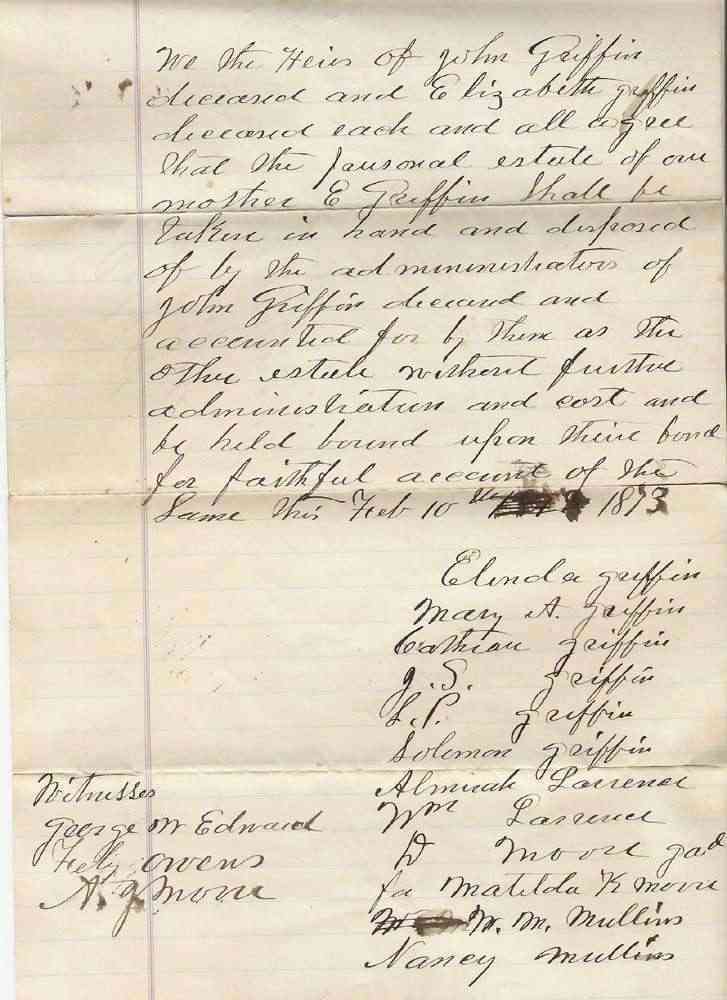 We the Heirs of John Griffin
deceased and Elizabeth griffin
deceased each and all agree
that the pursonal estate of our
mother E Griffin Shall be
taken in hand and disposed
of by the administrators of
John Griffin deceased and
accounted for by them as the
other estate without further
administration and cost and
be held bound upon there bond
for faithful account of the
Same this Feb 10th 1893
Elinda griffin
Mary A. griffin
griffin
J. S. griffin
S. P. griffin
Solomon griffin
Almirah Lawrence
Wm Lawrence
D Moore gad
for Matilda K moore
W. M. Mullins
Nancy mullins
Witnesses
George W Edward
owens
A. J Moore